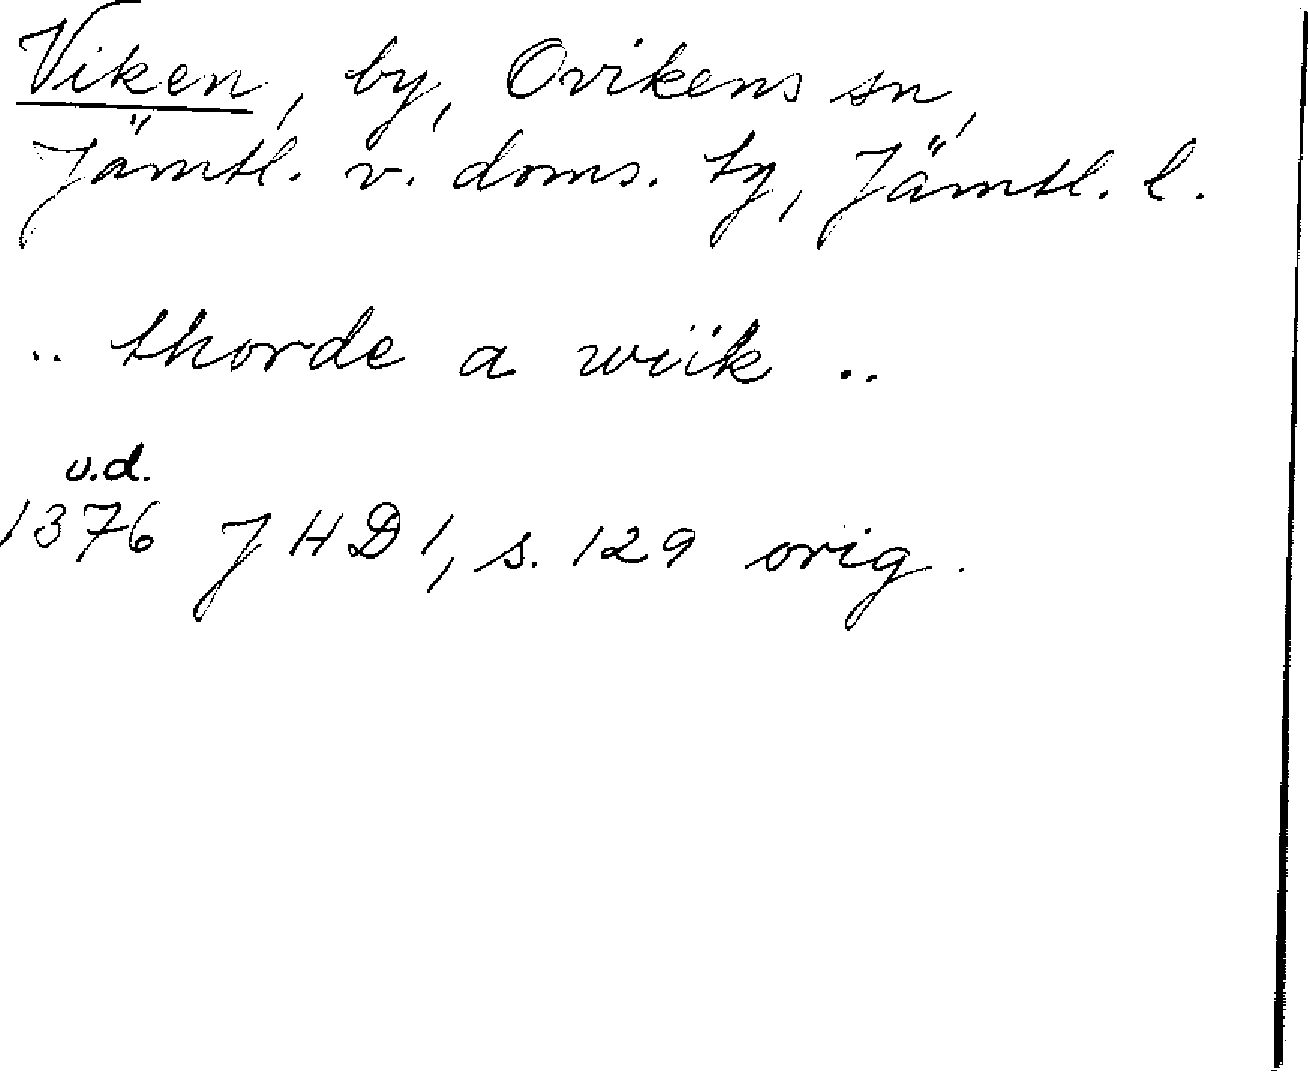 Viken, by, Ovikens sn,
Jämtl. v. doms. tg, Jämtl. l.
.. thorde a wiik ..
u.d.
1376 JHD 1, s. 129 orig.